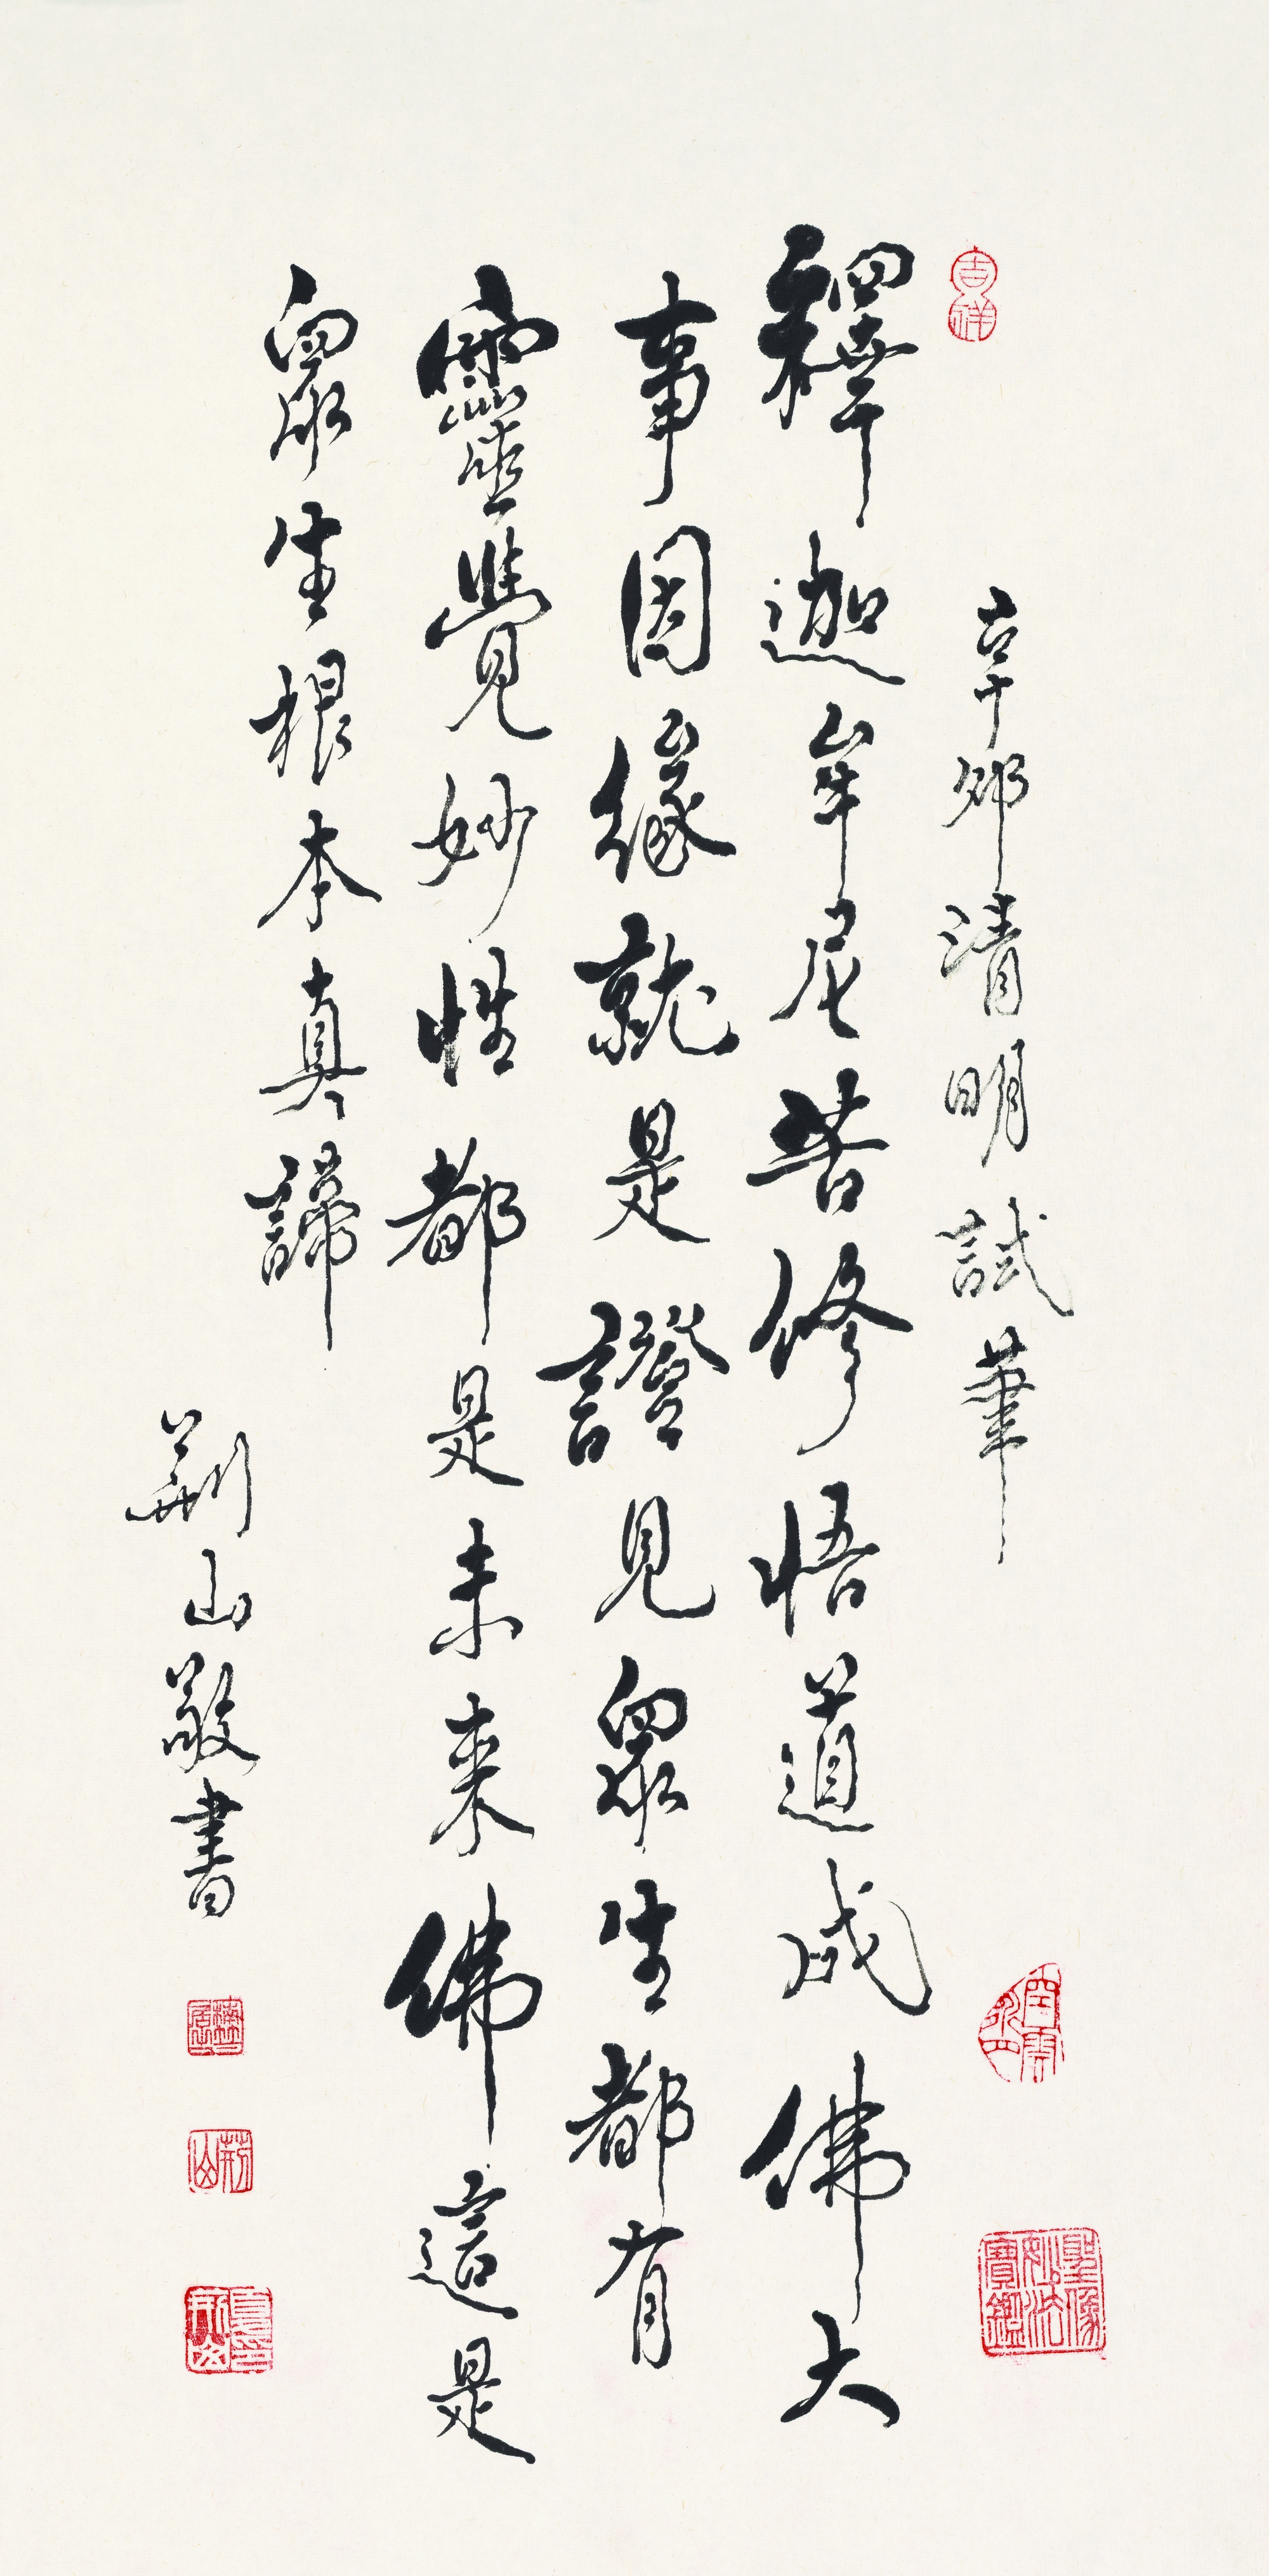 吉祥
辛卯清明試筆
釋迦牟尼苦修悟道成佛大
事因緣就是證見眾生都有
靈覺妙性都是未來佛這是
眾生根本真諦
荊山敬書
荊山
聖像妙法寶鑑